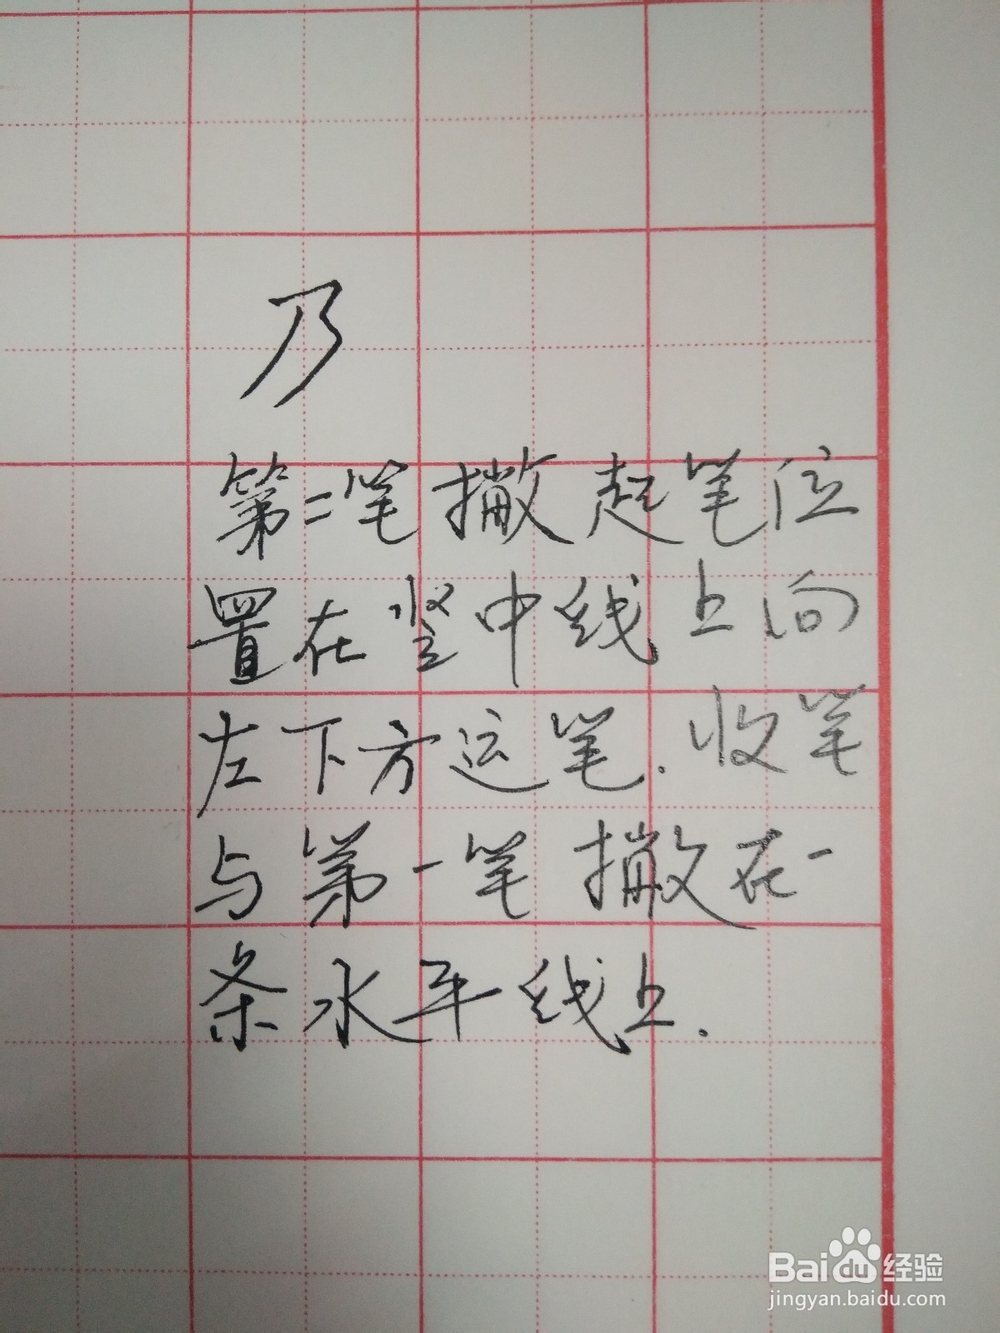 乃
第二笔撇起笔位
置在竖中线上向
左下方运笔.收笔
与第一笔撇在一
条水平线上.
Baidu经验
jingyan.baidu.com